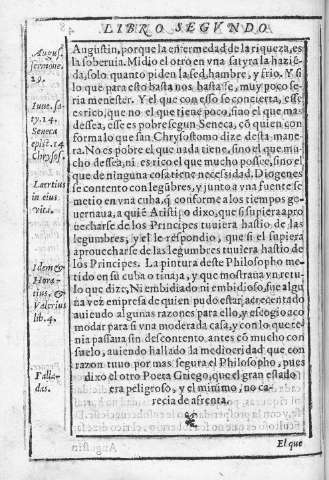 LIBRO SEGVNDO.
Augus.
sermone.
29.
Iuue. sa-
ty. 14.
Seneca
epist. 14
Chrysos.
Laertius
in eius
vita.
Idem &
Hora-
tius, &
Valerius
lib. 4.
Palla-
das.
Augustin, porque la enfermedad de la riqueza, es
la soberuia. Midio el otro en vna satyra la haziē-
da, solo quanto piden la sed, hambre, y frio. Y si
lo que para esto basta nos basta sse, muy poco se-
ria menester. Y el que con esso se concierta, esse
es rico, que no el que tiene poco, sino el que mas
dessea, esse es pobre segun Seneca, cō quien con
forma lo que san Chrysostomo dize desta mane-
ra. No es pobre el que nada tiene, sino el que mu-
cho dessea, ni es rico el que mucho possee, sino el
que de ninguna cosa tiene necessidad. Diogenes
se contento con legūbres, y junto a vna fuente se
metio en vna cuba, q̄ conforme a los tiempos go-
uernaua, a quiē Aristipo dixo, que si supiera apro
uecharse de los Principes tuuiera hastio de las
legumbres, y el le respondio, que si el supiera
aprouecharse de las legumbres tuuiera hastio de
los Principes. La pintura deste Philosopho me-
tido en su cuba o tinaja, y que mostraua vn retu-
lo que dize, Ni embidiado ni embidioso, fue algu
na vez empresa de quien pudo estar acrecentado
auiendo algunas razones para ello, y escogio aco
modar para si vna moderada casa, y con lo que te-
nia passaua sin descontento, antes cō mucho con
suelo, auiendo hallado la mediocridad que con
razon tuuo por mas segura el Philosopho, pues
dixo el otro Poeta Griego, que el gran estado
era peligroso, y el minimo, no ca-
recia de afrenta.
El que